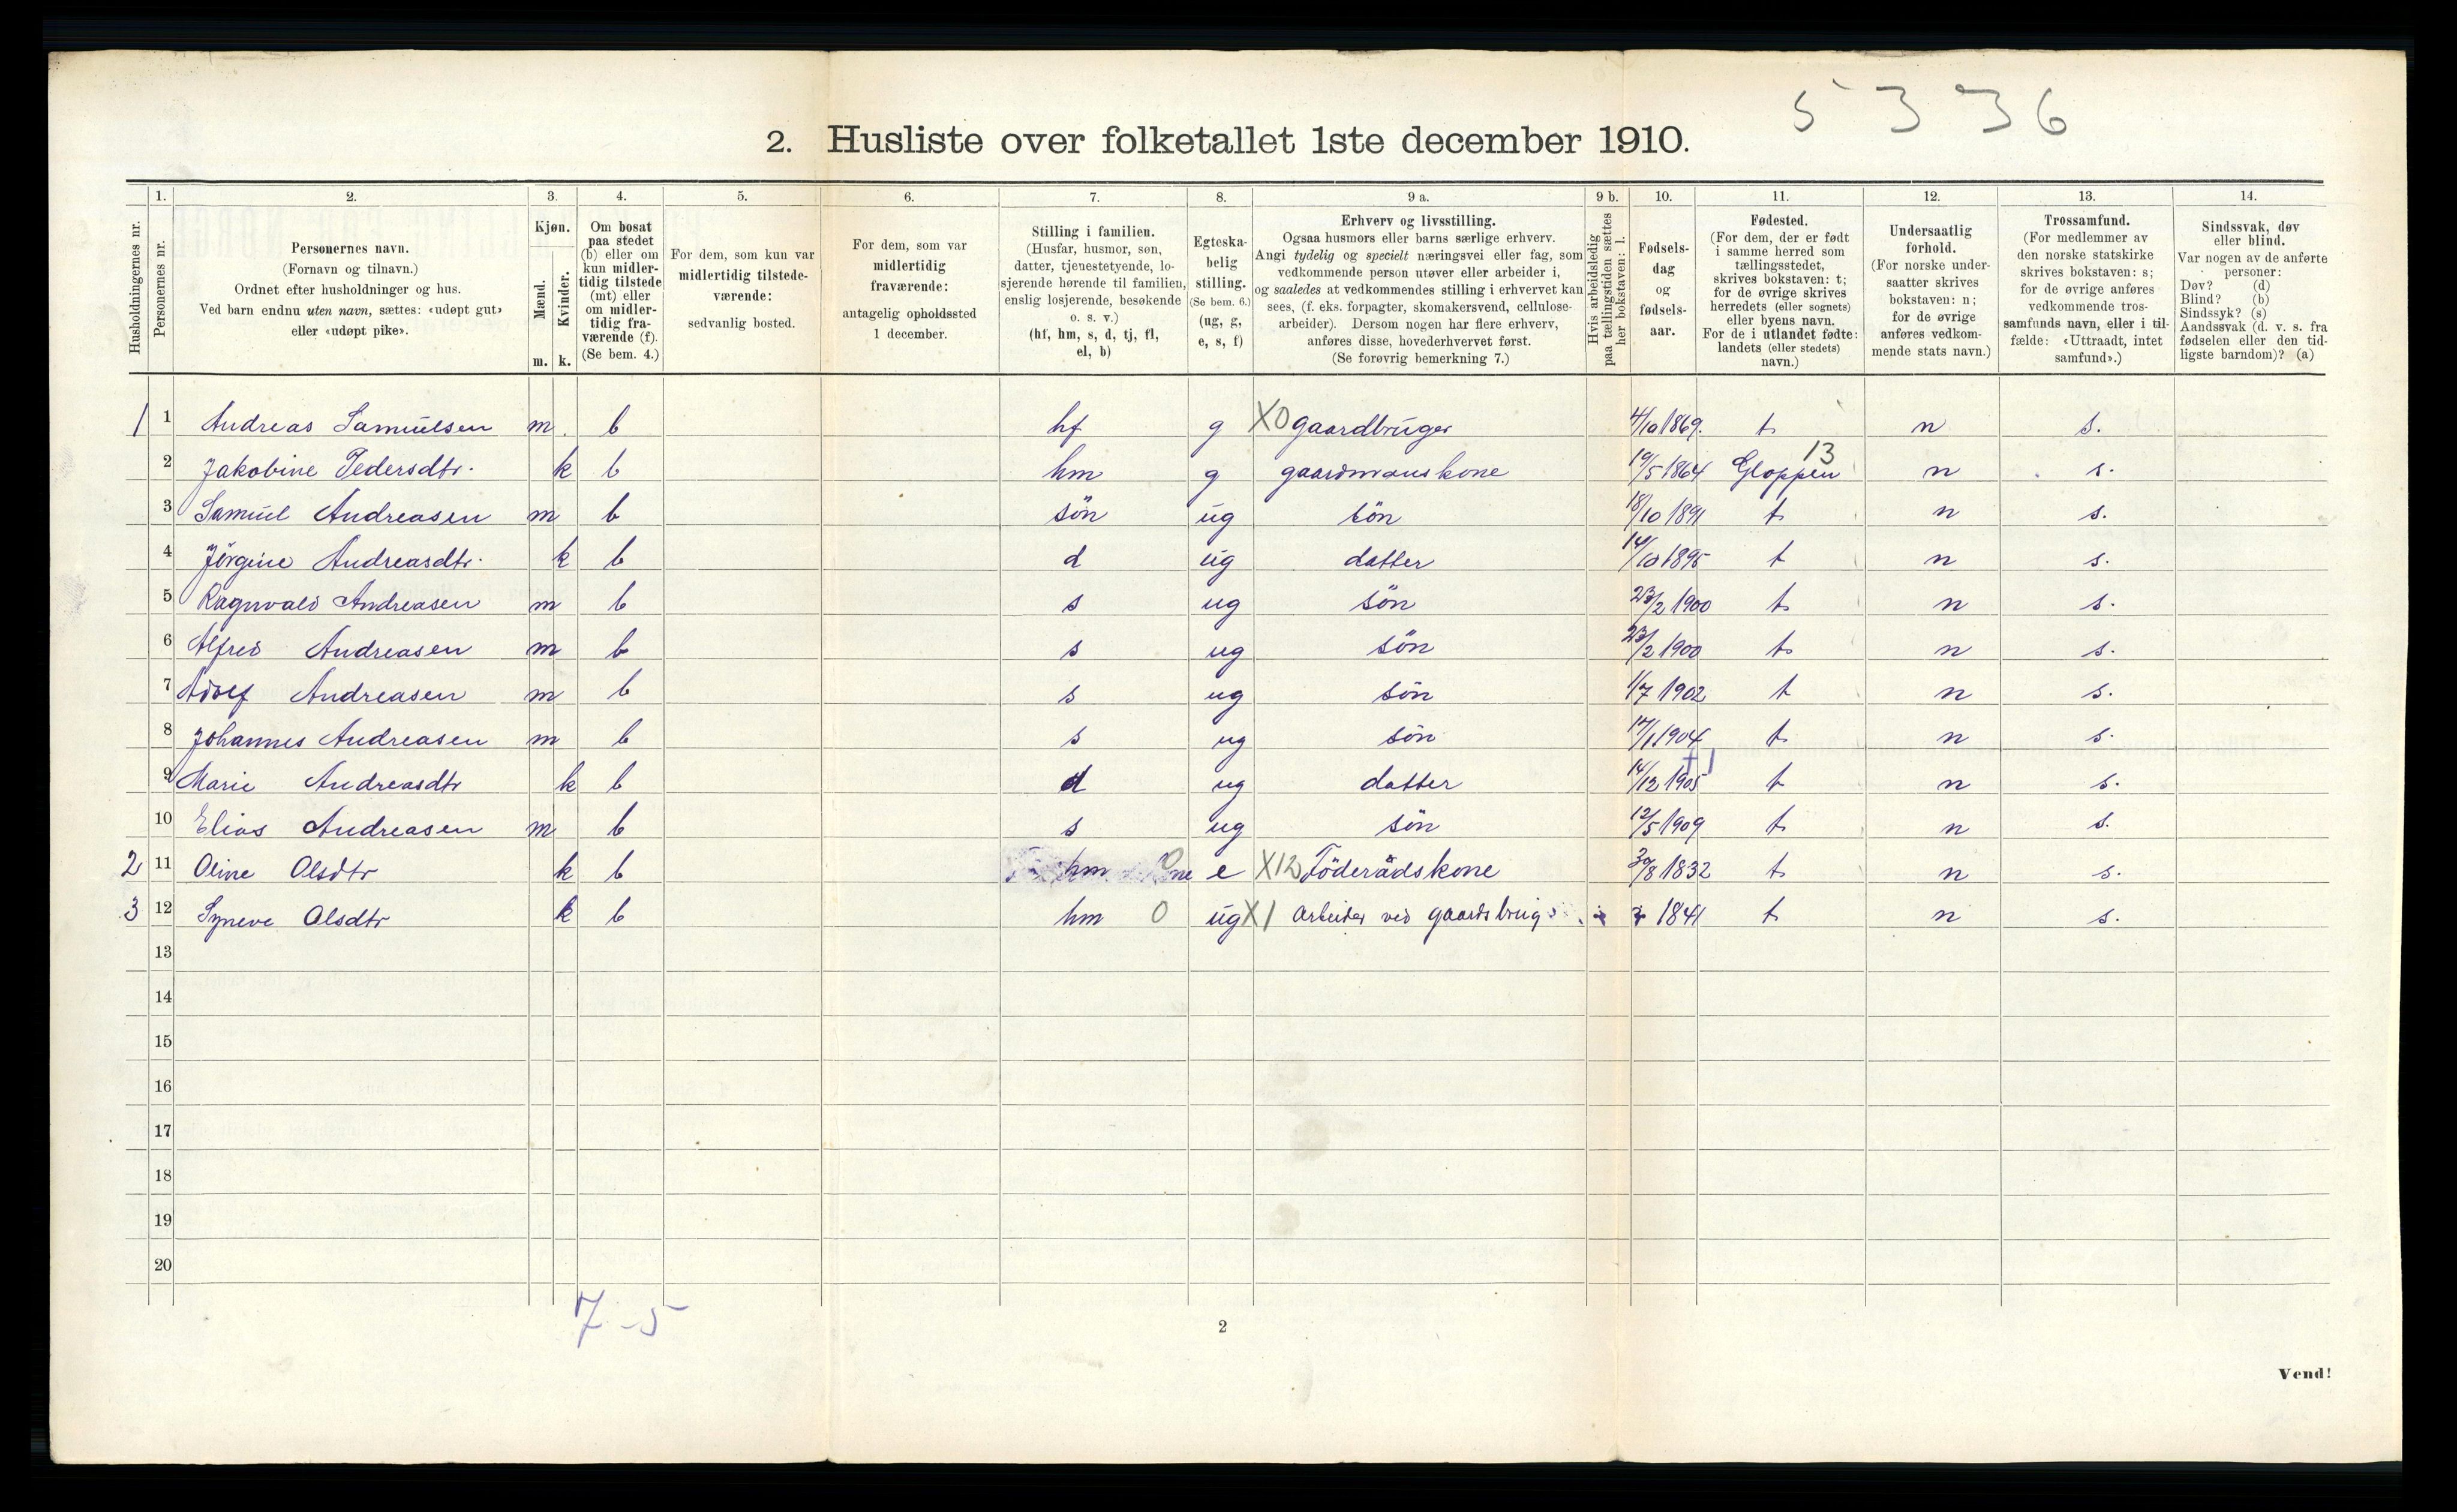 5 3 3 6
2. Husliste over folketallet 1ste december 1910.
Husholdningernes nr.
1. Personernes nr.
2. Personernes navn. (Fornavn og tilnavn.) Ordnet efter husholdninger og hus. Ved barn endnu uten navn, sættes: «udøpt gut» eller «udøpt pike».
3. Kjøn. Mænd. m. Kvinder. k.
4. Om bosat paa stedet (b) eller om kun midlertidig tilstede (mt) eller om midlertidig fraværende (f). (Se bem. 4.)
5. For dem, som kun var midlertidig tilstedeværende: sedvanlig bosted.
6. For dem, som var midlertidig fraværende: antagelig opholdssted 1 december.
7. Stilling i familien. (Husfar, husmor, søn, datter, tjenestetyende, losjerende hørende til familien, enslig losjerende, besøkende o. s. v.) (hf, hm, s, d, tj, fl, el, b)
8. Egteskabelig stilling. (Se bem. 6.) (ug, g, e, s, f)
9 a. Erhverv og livsstilling. Ogsaa husmors eller barns særlige erhverv. Angi tydelig og specielt næringsvei eller fag, som vedkommende person utøver eller arbeider i, og saaledes at vedkommendes stilling i erhvervet kan sees, (f. eks. forpagter, skomakersvend, cellulosearbeider). Dersom nogen har flere erhverv, anføres disse, hovederhvervet først. (Se forøvrig bemerkning 7.)
9 b. Hvis arbeidsledig paa tællingstiden sættes her bokstaven: l.
10. Fødselsdag og fødselsaar.
11. Fødested. (For dem, der er født i samme herred som tællingsstedet, skrives bokstaven: t; for de øvrige skrives herredets (eller sognets) eller byens navn. For de i utlandet fødte: landets (eller stedets) navn.)
12. Undersaatlig forhold. (For norske undersaatter skrives bokstaven: n; for de øvrige anføres vedkommende stats navn.)
13. Trossamfund. (For medlemmer av den norske statskirke skrives bokstaven: s; for de øvrige anføres vedkommende trossamfunds navn, eller i tilfælde: «Uttraadt, intet samfund».)
14. Sindssvak, døv eller blind. Var nogen av de anførte personer: Døv? (d) Blind? (b) Sindssyk? (s) Aandssvak (d. v. s. fra fødselen eller den tidligste barndom)? (a)
1 1 Andreas Samuelsen m. b hf g X0 gaardbruger 4/10 1869. t. n s.
2 Jakobine Pedersdtr. k b hm g gaardmanskone 19/5 1864 Gloppen 13 n s.
3 Samuel Andreasen m b sön ug sön 18/10 1891 t n s.
4 Jörgine Andreasdtr. k b d ug datter 14/10 1895 t n s.
5 Ragnvald Andreasen m b s ug sön 23/2 1900 t. n s.
6 Alfred Andreasen m b s ug sön 23/2 1900 t. n s.
7 Adolf Andreasen m b s ug sön 1/7 1902 t n s.
8 Johannes Andreasen m b s ug sön 17/1 1904 t. n s.
9 Marie Andreasdtr k b d ug datter 14/12 1905 t n s.
10 Elias Andreasen m b s ug sön 12/5 1909 t. n s.
2 11 Oline Olsdtr k b hm 0 e X12 Föderådskone 30/8 1832 t. n s.
3 12 Syneve Olsdtr k b hm 0 ug X1 arbeider ved gaardsbrug 1841 t. n s.
13
14
15
16
17
18
19
20
7-5
2
Vend!